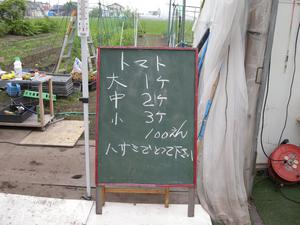 トマト
大 1ケ
中 2ケ
小 3ケ
100えん
ハサミでとって下さい